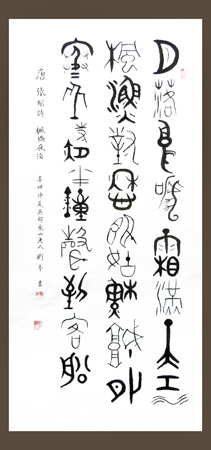 月落烏啼霜滿天江
楓漁火對愁眠姑蘇城外
寒山寺夜半鐘聲到客船
唐張繼詩 楓橋夜泊
仲夏 老人劉 書